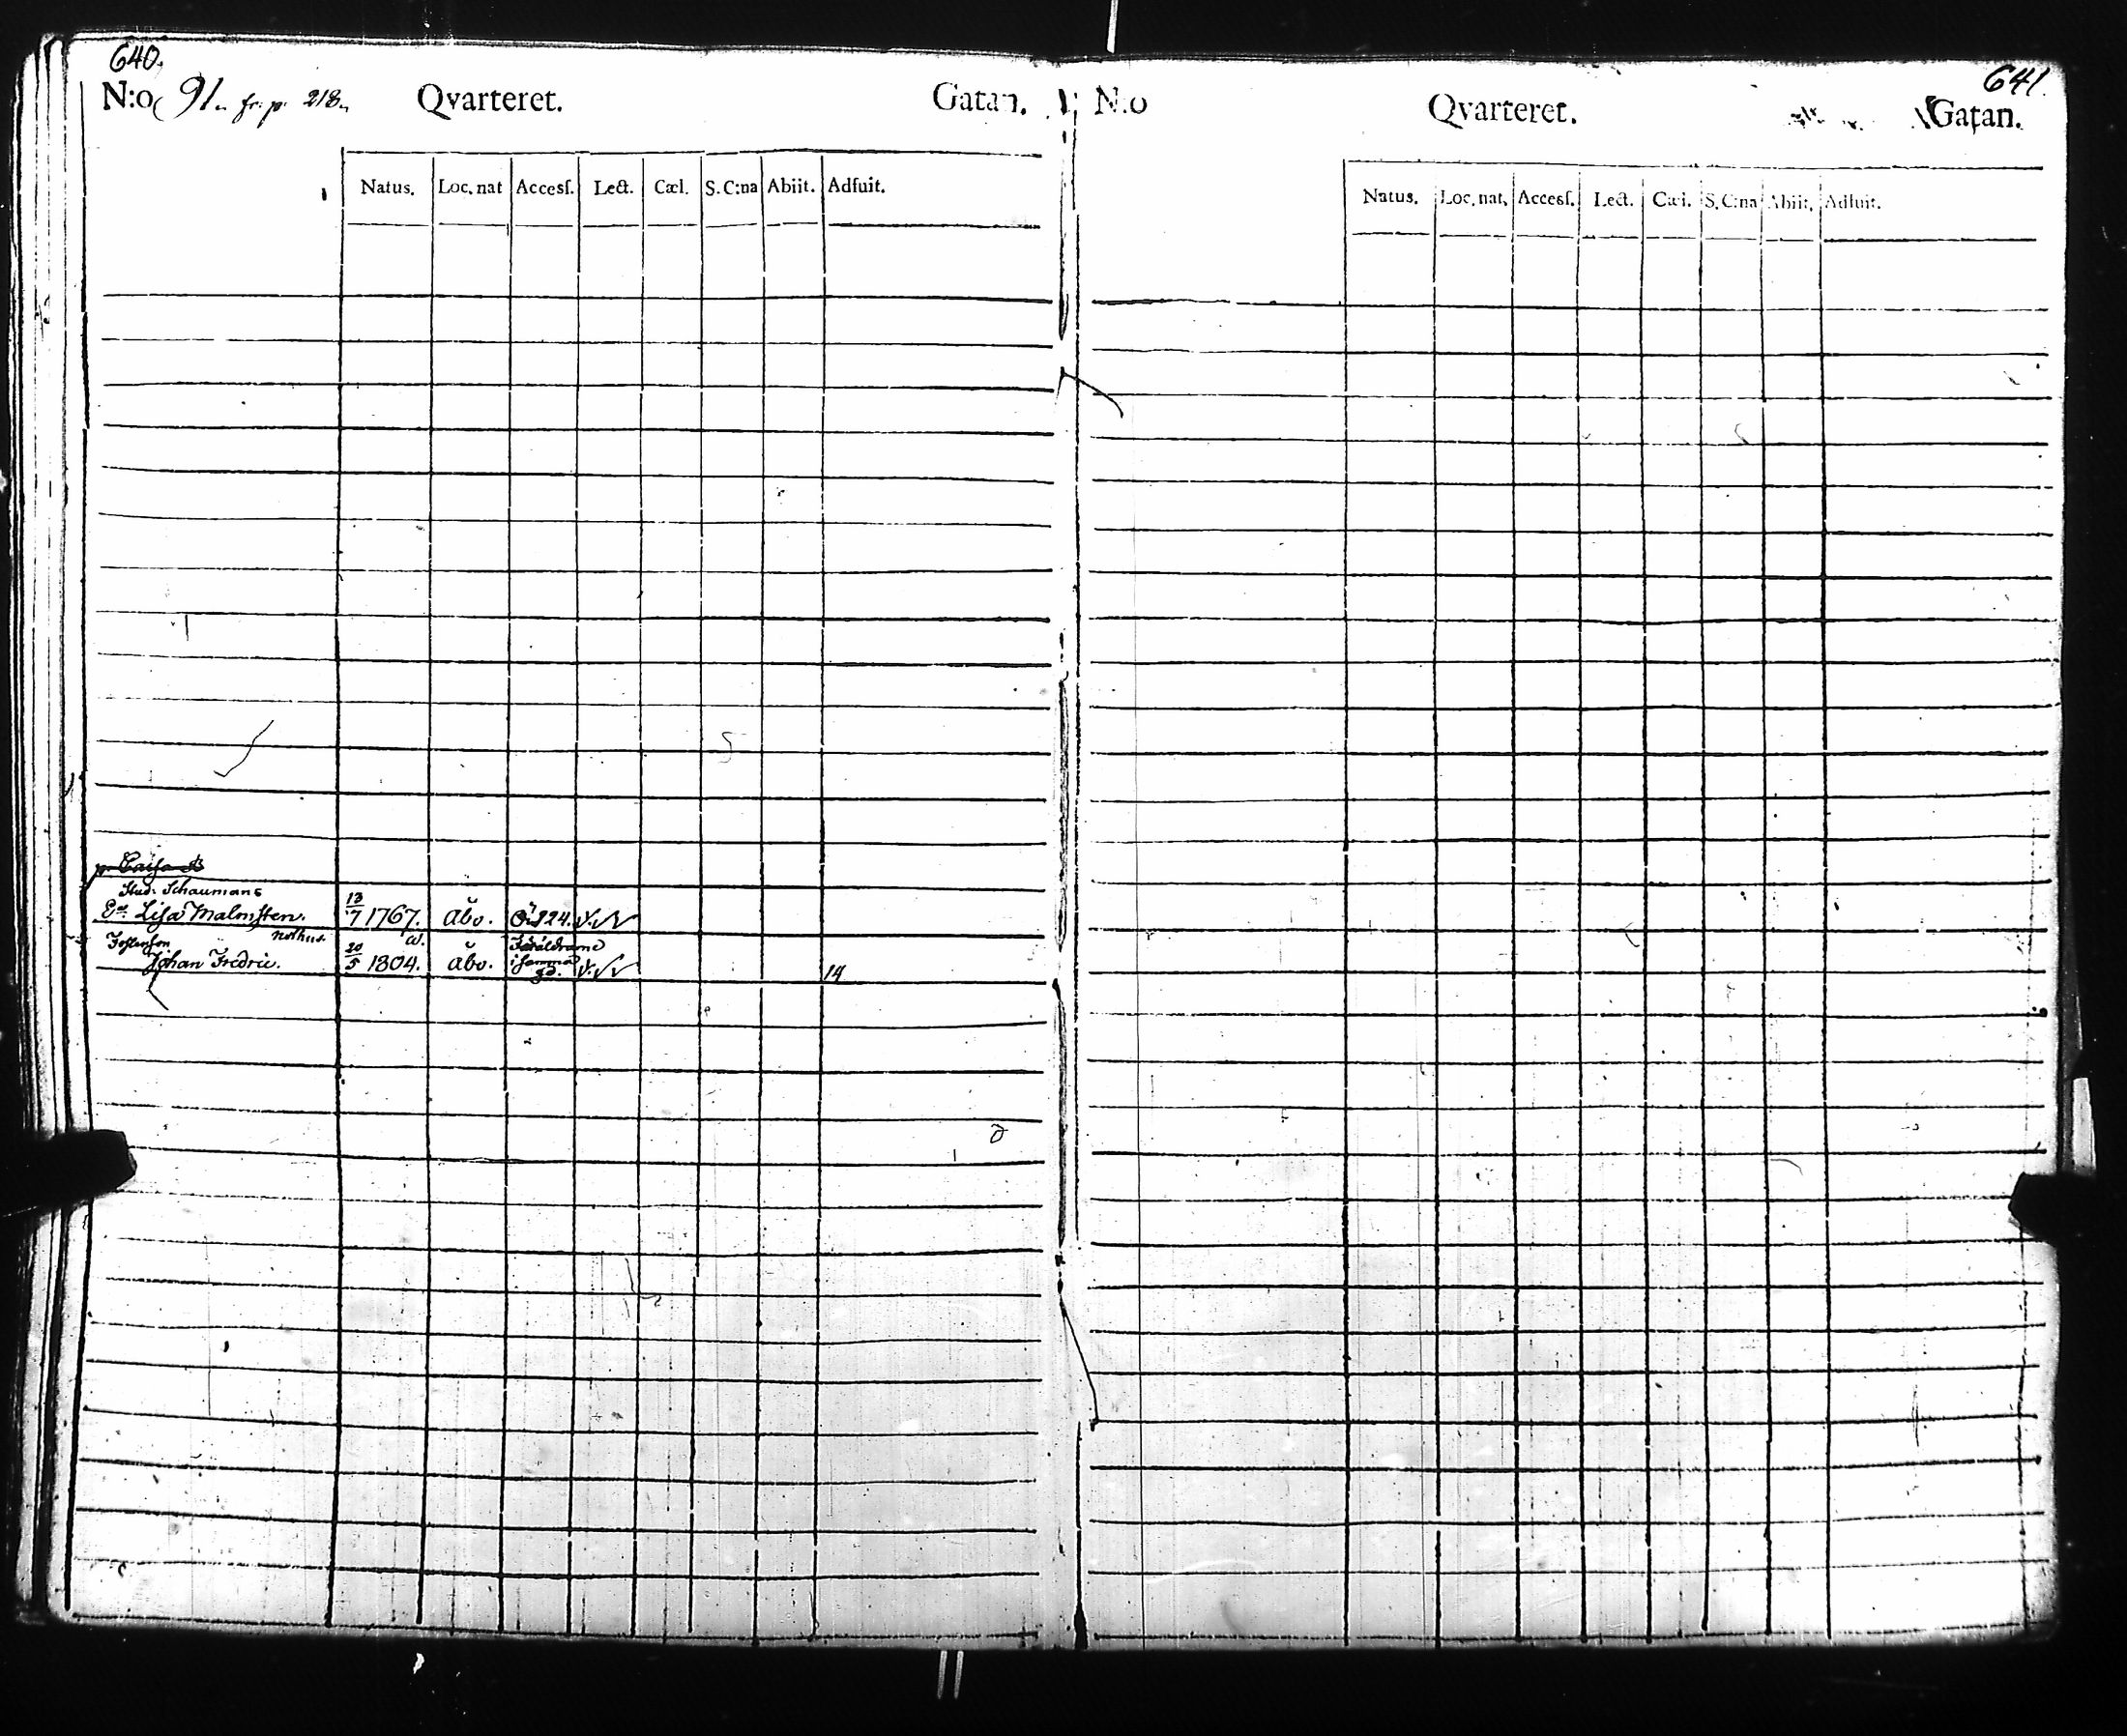 640.
N:o 91. fr. p. 218. Qvarteret. Gatan.
Natus. Loc. nat Accesſ. Lect. Cæl. S. C:na Abiit. Adfuit.
Caisa
Stud: Schaumans
Lisa Malmsten. 13/7 1767. Åbo. 224.
nothus.
Johan Fredric. 20/5 1804. Åbo. Föräldrarne
i samma
gd. 14
641.
N:o Qvarteret. Gatan.
Natus. Loc. nat. Accesſ. Lect. Cæl. S. C:na Abiit. Adfuit.